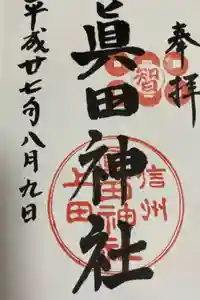 奉拝
智
眞田神社
信州
上田
眞田神社
平成廿七年八月九日